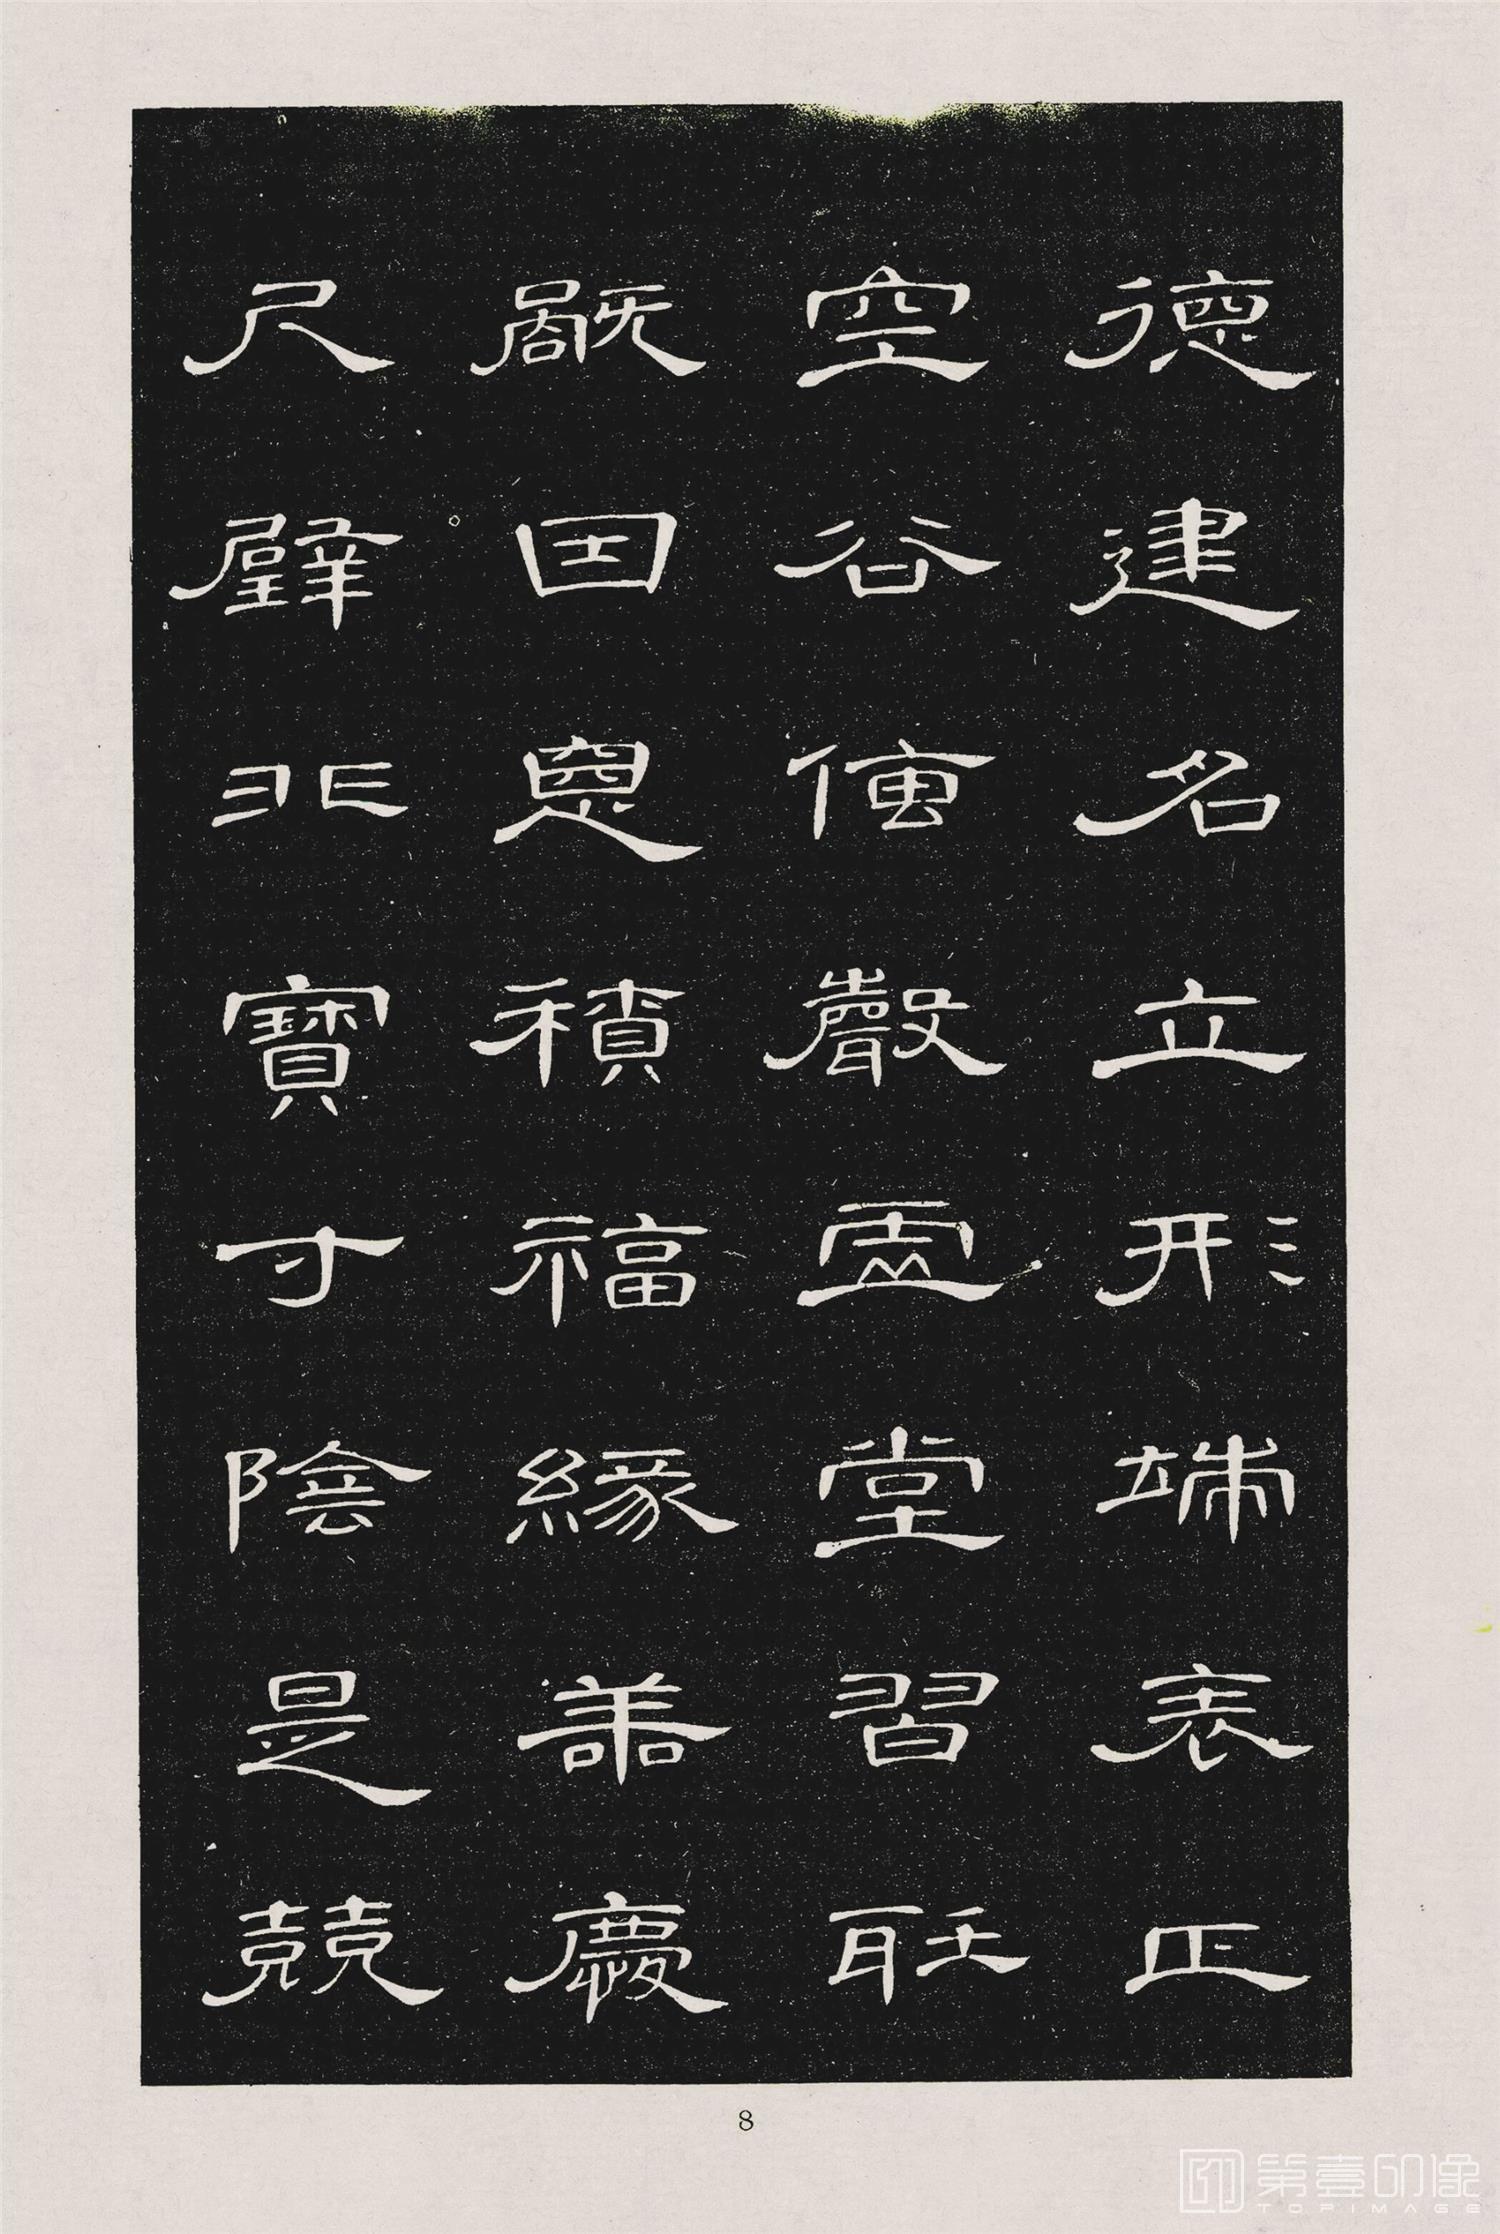 德建名立形端表正
空谷傳聲虛堂習聽
旤因惡積福緣善慶
尺璧非寶寸陰是競
8
第壹印像
TOPIMAGE